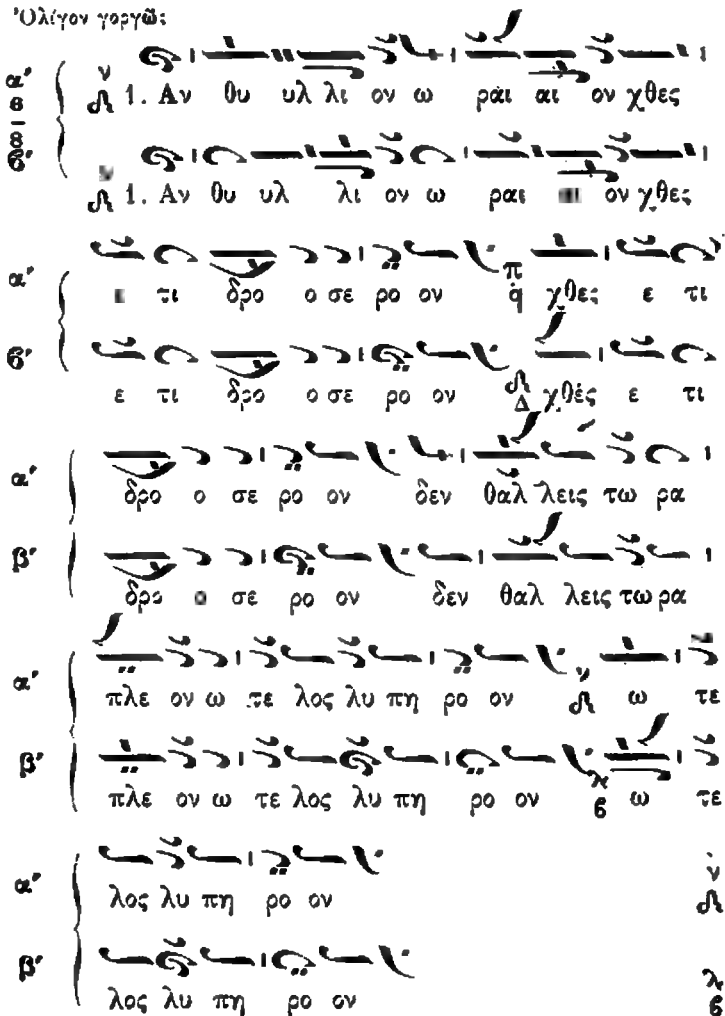 Ὀλίγον γοργῶς
α' ν 1. Αν θυ υλ λι ον ω ραι αι ον χθες
6/8
β' ν 1. Αν θυ υλ λι ον ω ραι ον χθες
α' ε τι δρο ο σε ρο ον π q χθες ε τι
β' ε τι δρο ο σε ρο ον Δ χθές ε τι
α' δρο ο σε ρο ον δεν θαλ λεις τω ρα
β' δρο ο σε ρο ον δεν θαλ λεις τω ρα
α' πλε ον ω τε λος λυ πη ρο ον ν ω τε
β' πλε ον ω τε λος λυ πη ρο ον ω τε
α' λος λυ πη ρο ον ν
β' λος λυ πη ρο ον